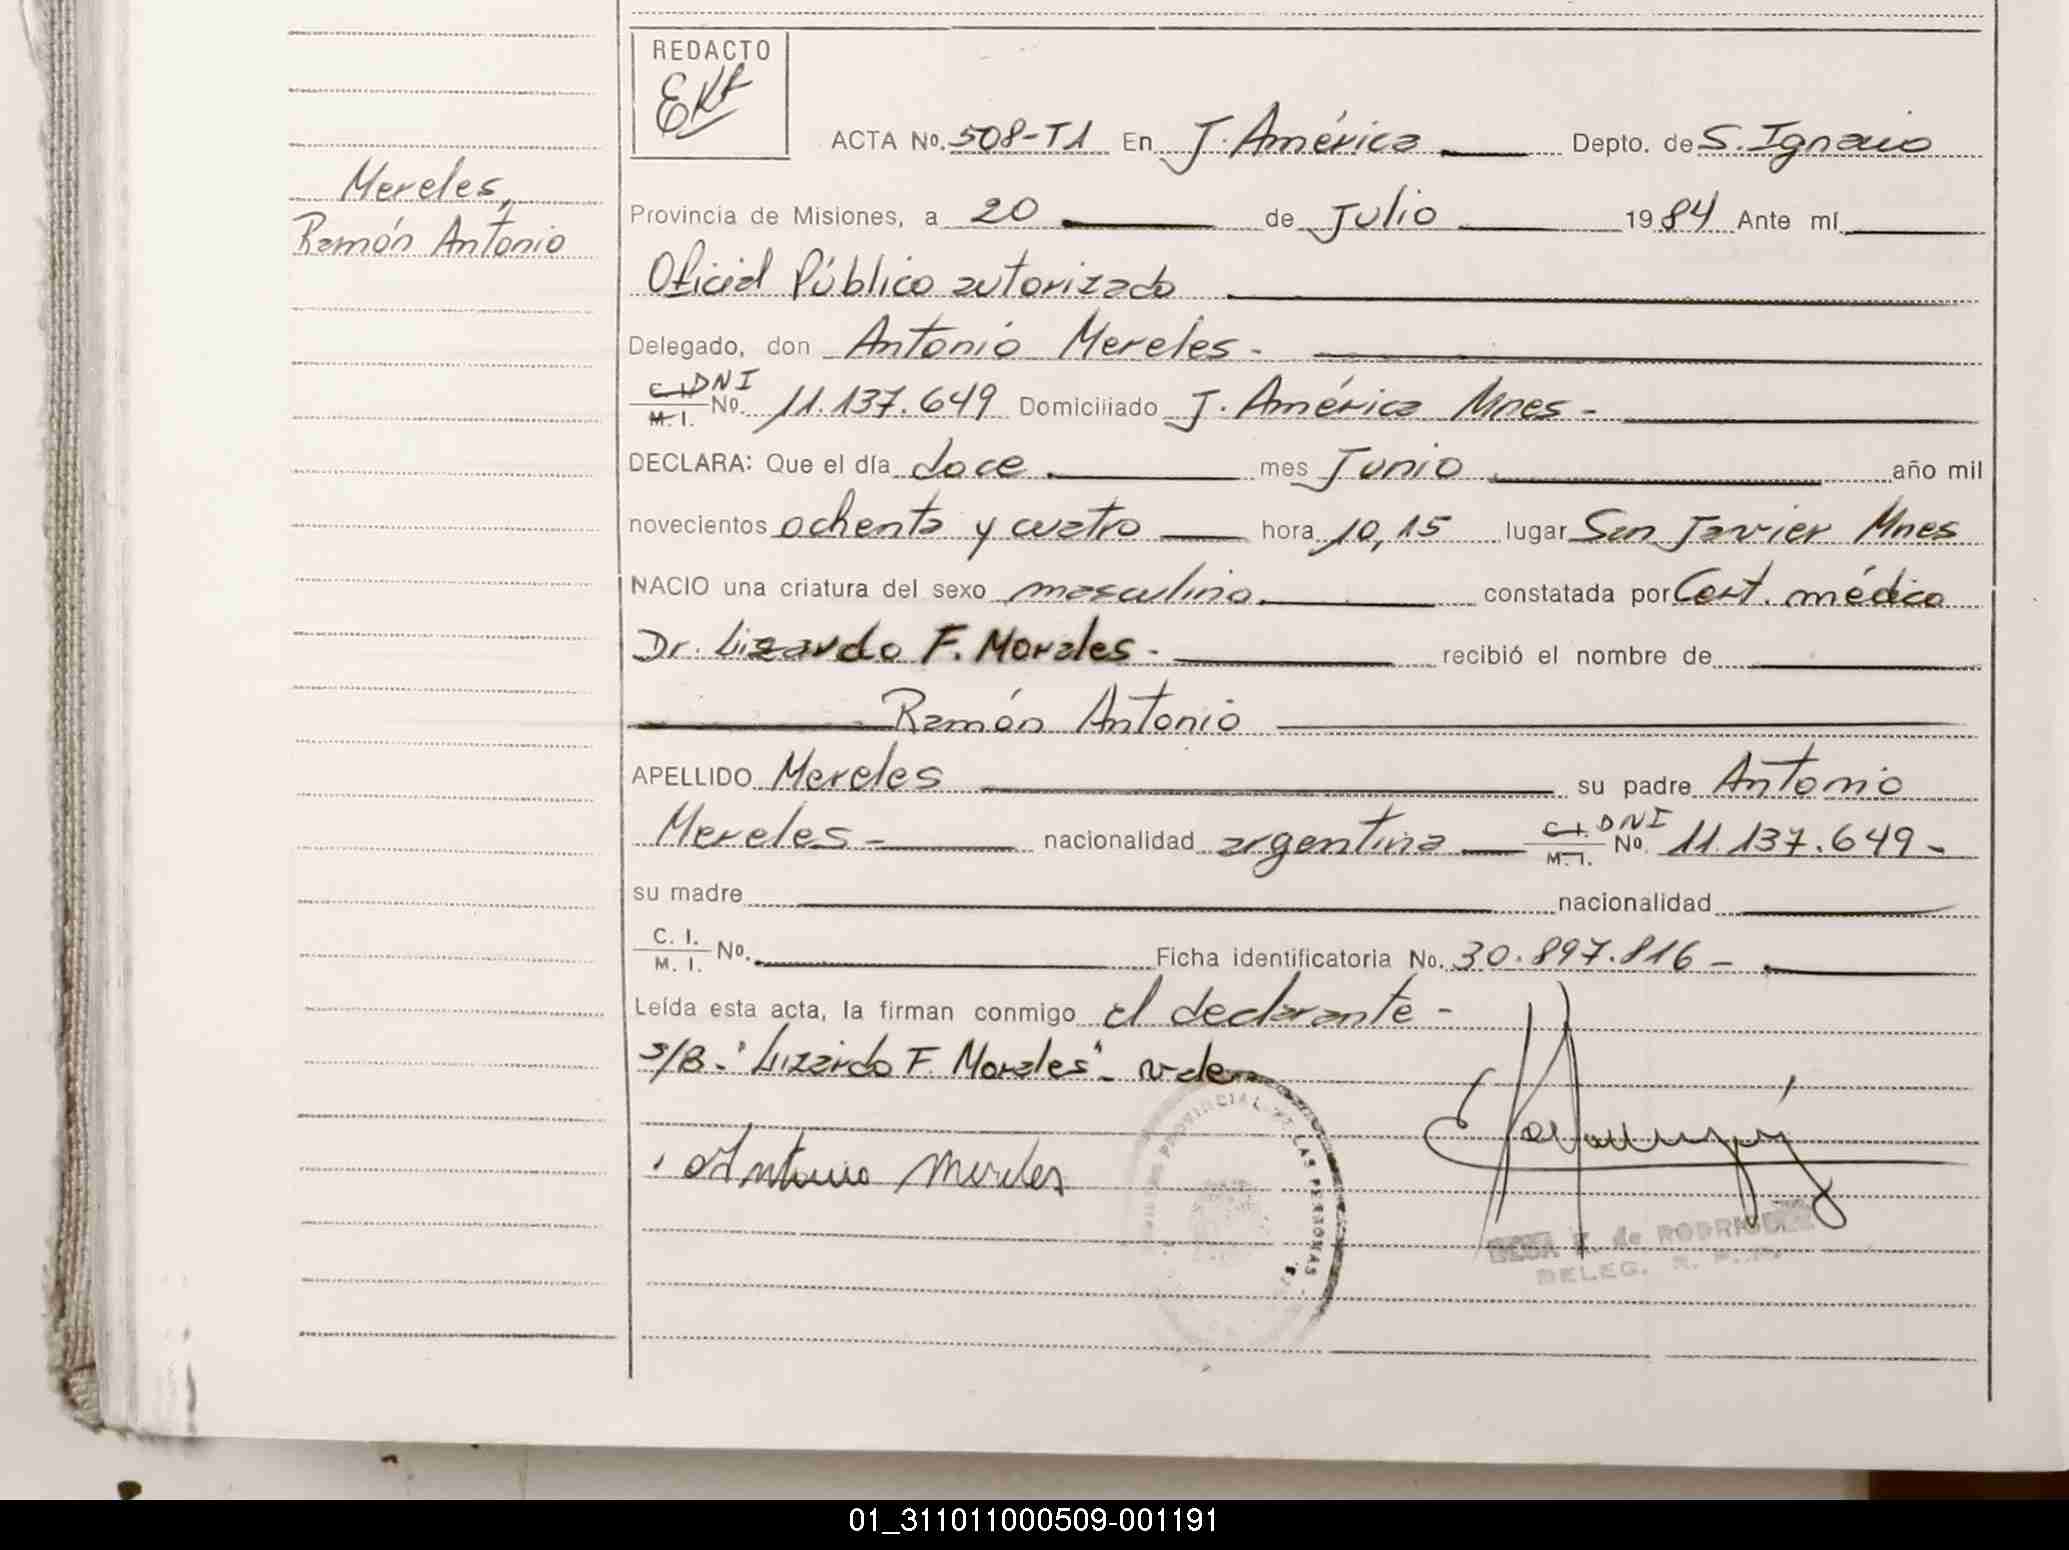 REDACTO
ACTA No. 508-T1 En J. América Depto. de S. Ignacio
Mereles,
Ramón Antonio
Provincia de Misiones, a 20 de Julio 1984 Ante mí
Oficial Público autorizado
Delegado, don Antonio Mereles -
C.I. DNI
M.I. No. 11.137.649 Domiciliado J. América Mnes -
DECLARA: Que el día doce mes Junio año mil
novecientos ochenta y cuatro hora 10,15 lugar San Javier Mnes
NACIO una criatura del sexo masculino constatada por Cert. médico
Dr. Lizardo F. Morales - recibió el nombre de
Ramón Antonio
APELLIDO Mereles su padre Antonio
Mereles - nacionalidad argentina C.I. DNI M.I. No. 11.137.649 -
su madre nacionalidad
C. I.
M. I. No. Ficha identificatoria No. 30.897.816 -
Leída esta acta, la firman conmigo el declarante -
s/B. "Lizardo F. Morales" - vale
PROVINCIAL DE LAS PERSONAS
Antonio Mereles
de RODRIGUEZ
DELEG. R. P. P.
01_311011000509-001191